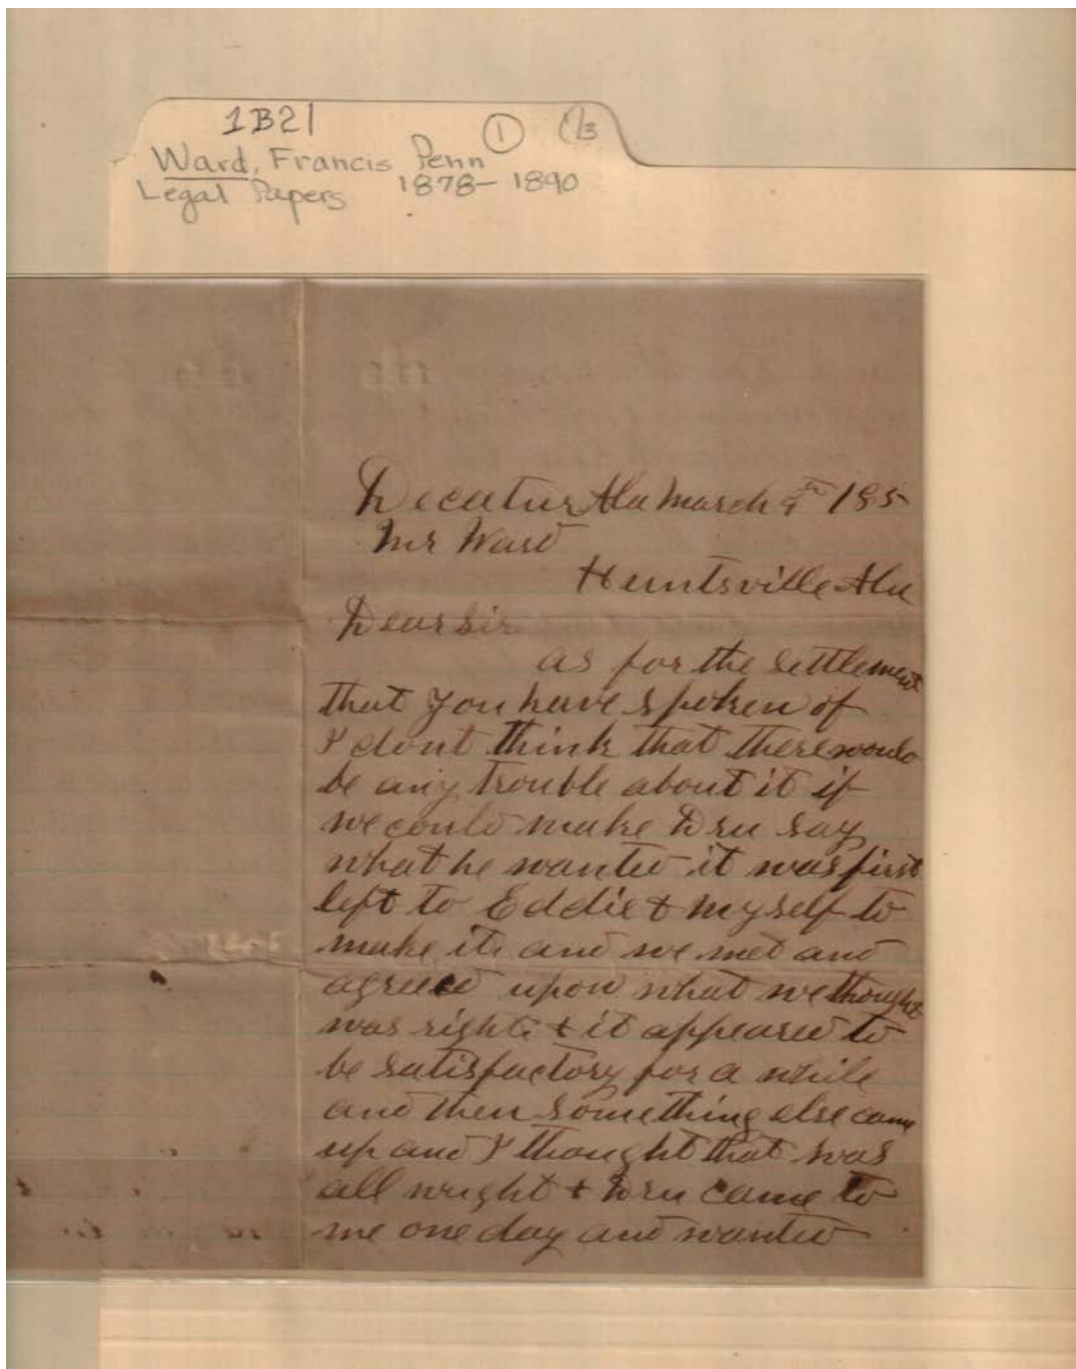 1B21 ① 1/3
Ward, Francis Penn
Legal Papers 1878-1890
Decatur Ala March 9th 185
Mr Ward
Huntsville Ala
Dear Sir
as for the settlement
that you have spoken of
I dont think that there would
be any trouble about it if
we could make Dru say
what he wanted it was first
left to Eddie & myself to
make it and we met and
agreed upon what we thought
was right & it appeared to
be satisfactory for a while
and then something else came
up and I thought that was
all wright & Dru came to
me one day and wanted